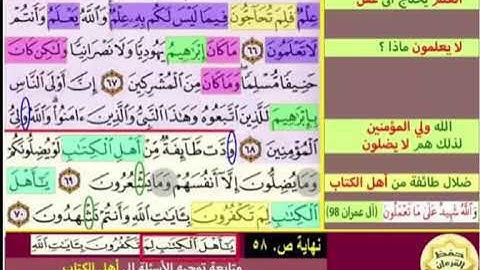 عِلْمٌ فَلِمَ تُحَاجُّونَ فِيمَا لَيْسَ لَكُم بِهِ عِلْمٌ وَاللَّهُ يَعْلَمُ وَأَنتُمْ
لَا تَعْلَمُونَ ٦٦ مَا كَانَ إِبْرَاهِيمُ يَهُودِيًّا وَلَا نَصْرَانِيًّا وَلَٰكِن كَانَ
حَنِيفًا مُّسْلِمًا وَمَا كَانَ مِنَ الْمُشْرِكِينَ ٦٧ إِنَّ أَوْلَى النَّاسِ
بِإِبْرَاهِيمَ لَلَّذِينَ اتَّبَعُوهُ وَهَٰذَا النَّبِيُّ وَالَّذِينَ ءَامَنُوا وَاللَّهُ وَلِيُّ
الْمُؤْمِنِينَ ٦٨ وَدَّت طَّائِفَةٌ مِّنْ أَهْلِ الْكِتَابِ لَوْ يُضِلُّونَكُمْ
وَمَا يُضِلُّونَ إِلَّا أَنفُسَهُمْ وَمَا يَشْعُرُونَ ٦٩ يَا أَهْلَ
الْكِتَابِ لِمَ تَكْفُرُونَ بِـَٔايَاتِ اللَّهِ وَأَنتُمْ تَشْهَدُونَ ٧٠
لا يعلمون ماذا ؟
الله ولي المؤمنين
لذلك هم لا يضلون
ضلال طائفة من أهل الكتاب
وَاللَّهُ شَهِيدٌ عَلَىٰ مَا تَعْمَلُونَ (آل عمران 98)
نهاية ص. ٥٨
يَا أَهْلَ الْكِتَابِ لِمَ تَكْفُرُونَ بِـَٔايَاتِ اللَّهِ
ومتابعة توجيه الأسئلة إلى أهل الكتاب
حفظ
القرآن